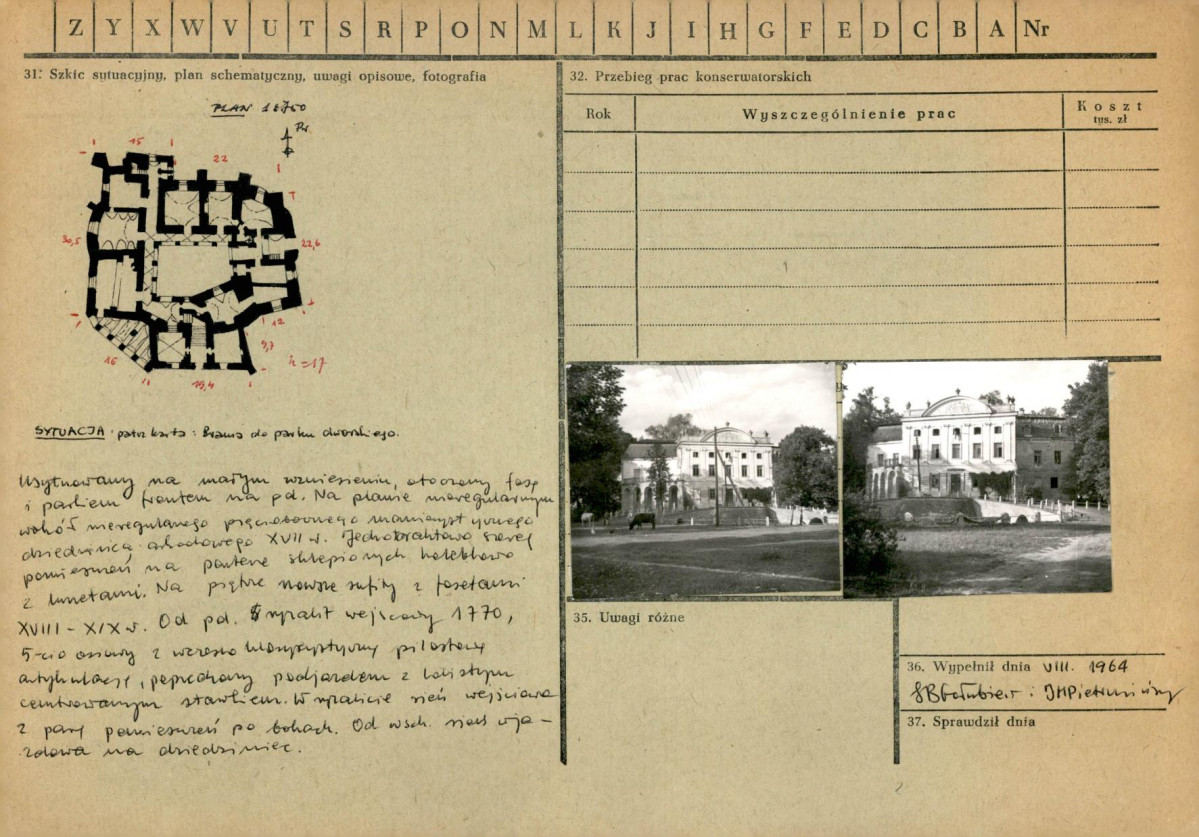 Z Y X W V U T S R P O N M L K J I H G F E D C B A Nr
31. Szkic sytuacyjny, plan schematyczny, uwagi opisowe, fotografia
PLAN 1:750
15
22
30,5
22,6
12
9,7
16
19,4
h=17
SYTUACJA patrz karta: Brama do parku dworskiego.
Usytuowany na małym wzniesieniu, otoczony fosą
i parkiem frontem na pd. Na planie nieregularnym
wokół nieregularnego pięciobocznego manierystycznego
dziedzińca arkadowego XVII w. Jednotraktowo szereg
pomieszczeń na parterze sklepionych kolebkowo
z lunetami. Na piętrze nowsze sufity z fasetami
XVIII - XIX w. Od pd. ryzalit wejściowy 1770,
5-cio osiowy z wczesno klasycystyczną pilastrową
artykulacją, poprzedzony podjazdem z kolistym
centrowanym stawkiem. W ryzalicie sień wejściowa
z parą pomieszczeń po bokach. Od wsch. sień wja-
zdowa na dziedziniec.
32. Przebieg prac konserwatorskich
Rok Wyszczególnienie prac Koszt
tys. zł
35. Uwagi różne
36. Wypełnił dnia VIII. 1964
37. Sprawdził dnia